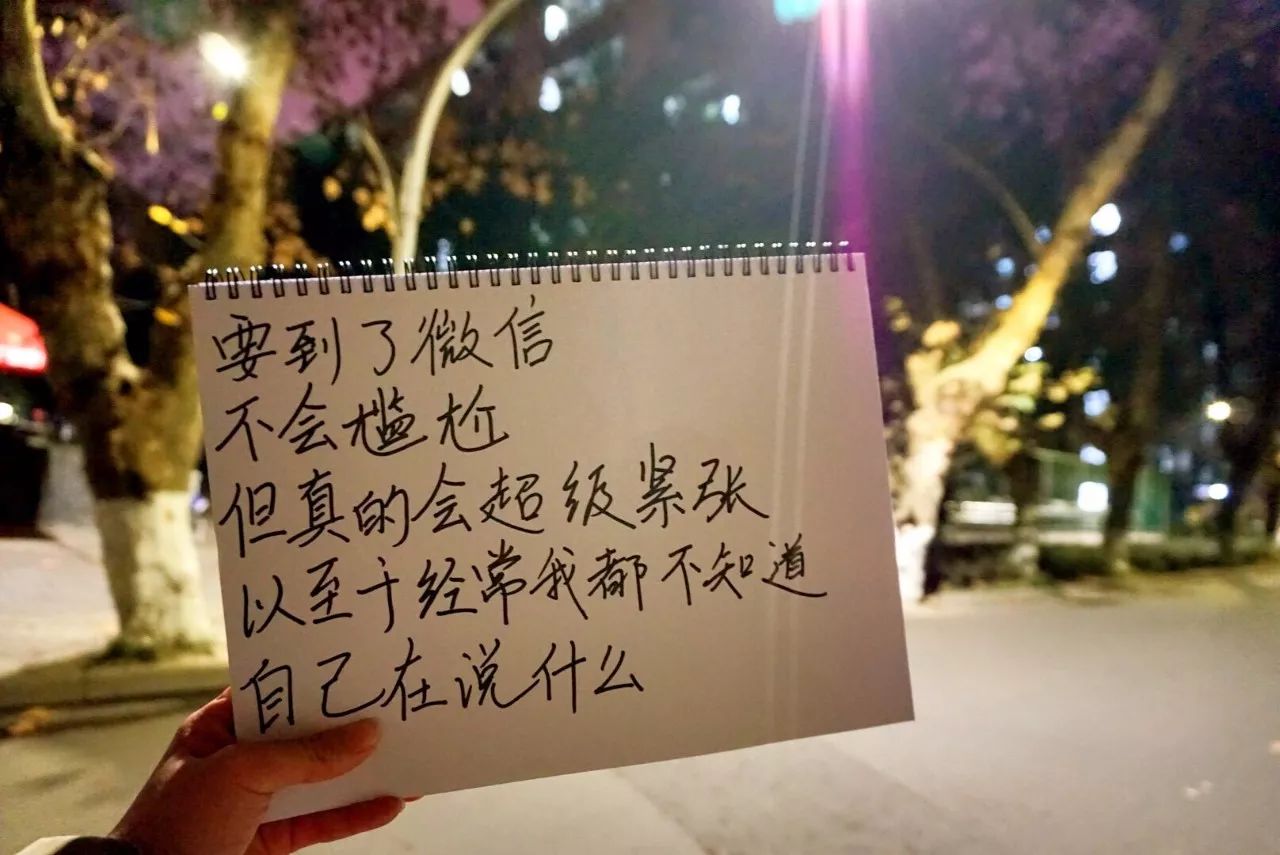 要到了微信
不会尴尬
但真的会超级紧张
以至于经常我都不知道
自己在说什么